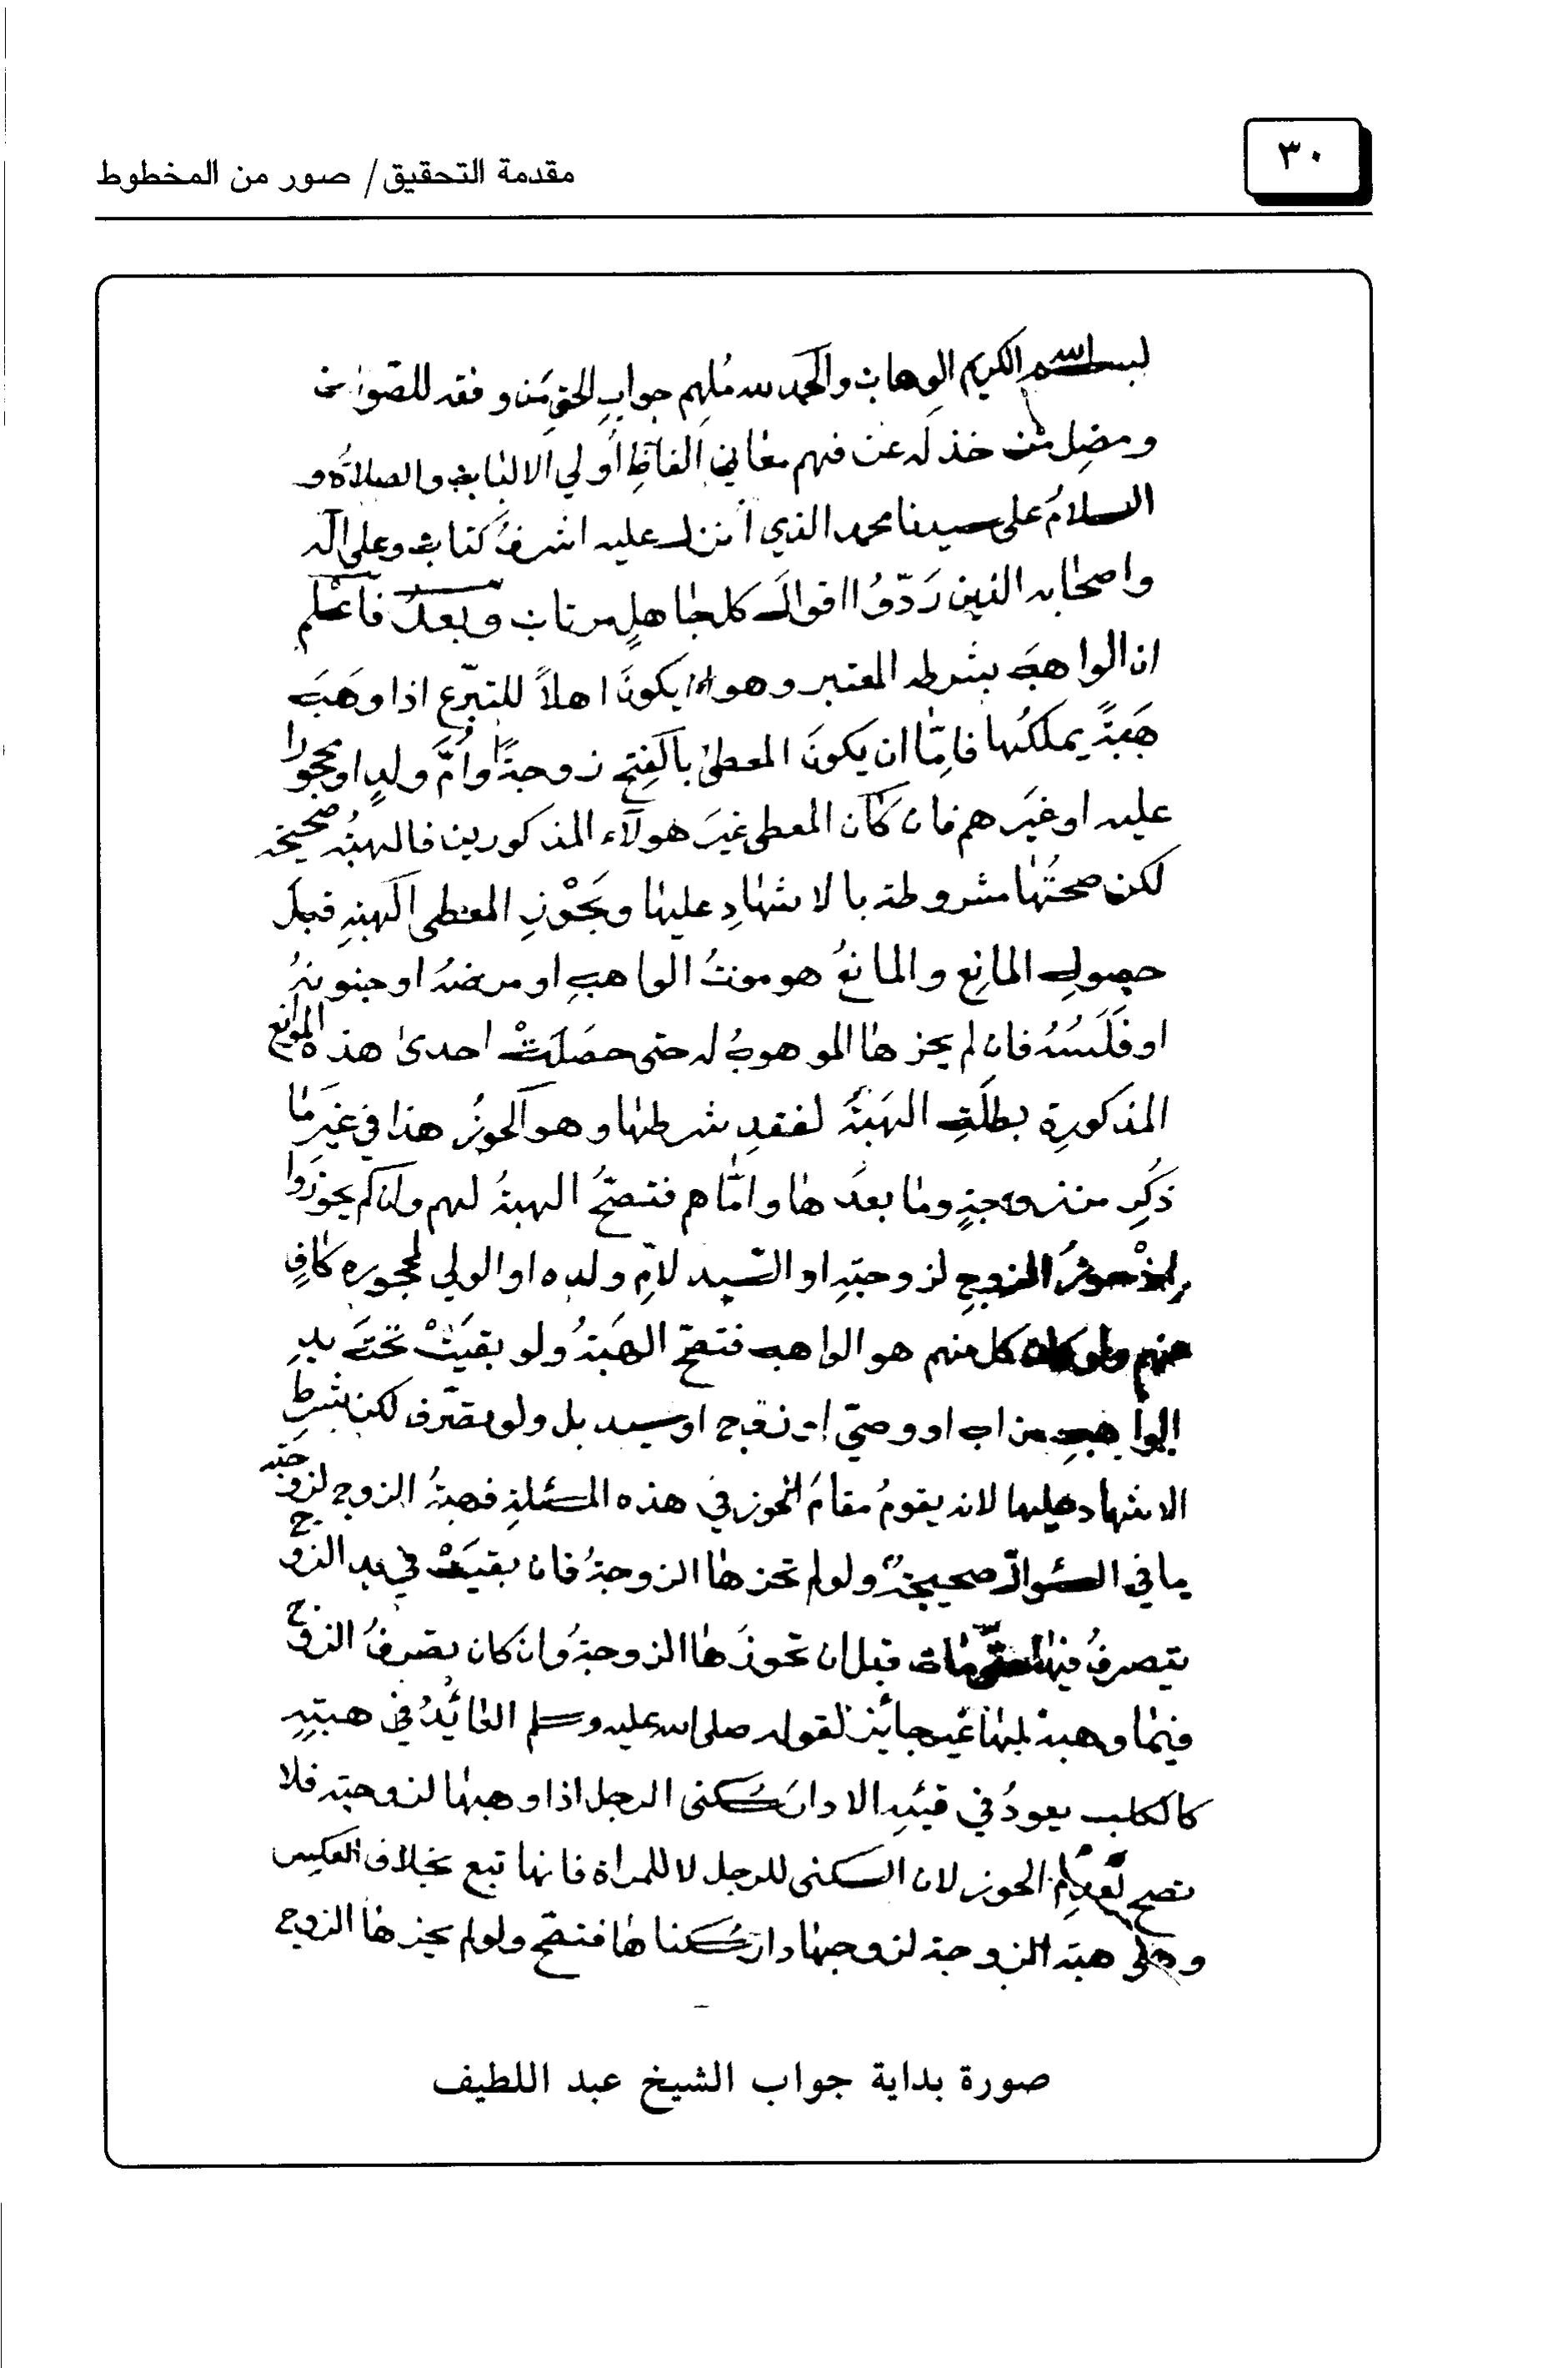 ٣٠
مقدمة التحقيق/ صور من المخطوط
بسم الله الكريم الوهاب والحمد لله مُلهِم جوابِ الحقِ مَن وفقه للصواب
ومضِل من خذله عن فهم معاني الفاظِ أولي الالبابِ والصلاةُ و
السلامُ على سيدنا محمد الذي أنزل عليه اشرفُ كتاب وعلى آله
واصحابه الذين رَدّوُا اقوالَ كل جاهلٍ مرتاب وبعدُ فاعْلم
ان الواهبَ بشرطه المعتبر وهو ان يكونَ اهلاً للتبرّع اذا وهَبَ
هَبَةً يملكُها فاِمّا ان يكونَ المعطىٰ بالفتح زوجةً او أُمَّ ولدٍ او محجورا
عليه او غيَرهم فان كان المعطى غيَر هولآء المذكورين فالهبةُ صحيحة
لكن صحتُها مشروطة بالاشهادِ عليها وبحَوْزِ المعطى الهبةِ قبلَ
حصولِ المانِع والمانعُ هو موتُ الواهبِ او مرضهُ او جنونهُ
او فَلَسُهُ فان لم يحزها الموهوبُ له حتى حصَلَتْ احدى هذه الموانع
المذكورةِ بطلَتِ الهَبَةُ لفقدِ شرطها وهو الحوزُ هذا في غيَر ما
ذُكِر من زوجةٍ وما بعدَها وامّا هم فتصحُّ الهبةُ لهم وان لم يحوزوا
اِذْ حوزُ الزوجِ لزوجتهِ او السّيد لامِّ ولده او الولي لمحجوره كافٍ
منهم ولو كان كل منهم هو الواهب فتصحّ الهَبَةُ ولو بقيَتْ تحتَ يدِ
الواهبِ من اب او وصيّ او زوج او سيد بل ولو بتصرّف لكن بشرطِ
الاشهاد عليها لانه يقومُ مقامَ الحوز في هذه المسئلةِ فهبةُ الزوج لزوجته
ما في السئوال صحيحة ولو لم تحزها الزوجةُ فان بقيَتْ في يد الزوج
يتصرفُ فيها حتّى مات قبل ان تحوزَها الزوجةُ وان كان تصرفُ الزوج
فيما وهبهُ لها غير جائيز لقوله صلى الله عليه وسلم العائِدُ في هبتِهِ
كالكلب يعودُ في قيئهِ الا دارَ سُكنى الرجل اذا وهبها لزوجته فلا
تصح لعدمِ الحوز لان السكنى للرجل لا للمراة فانها تبع بخلاف العكس
وهي هبة الزوجة لزوجها دارَ سُكناها فتصحّ ولو لم يحزها الزوج
صورة بداية جواب الشيخ عبد اللطيف